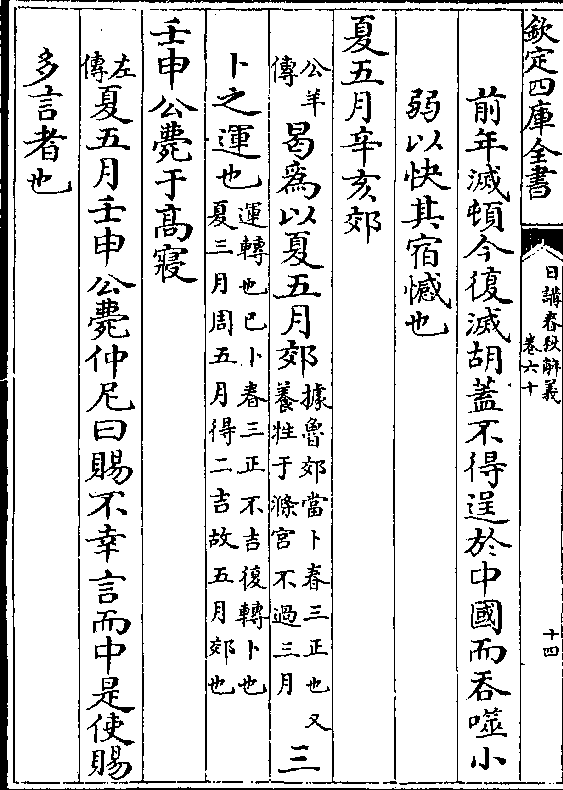 欽定四庫全書
日講春秋解義
卷六十
十四
前年滅頓今復滅胡蓋不得逞於中國而吞噬小
弱以快其宿憾也
夏五月辛亥郊
公羊傳
曷為以夏五月郊
據魯郊當卜春三正也又
養牲于滌宮不過三月
三
卜之運也
運轉也已卜春三正不吉復轉卜也
夏三月周五月得二吉故五月郊也
壬申公薨于高寢
左傳
夏五月壬申公薨仲尼曰賜不幸言而中是使賜
多言者也